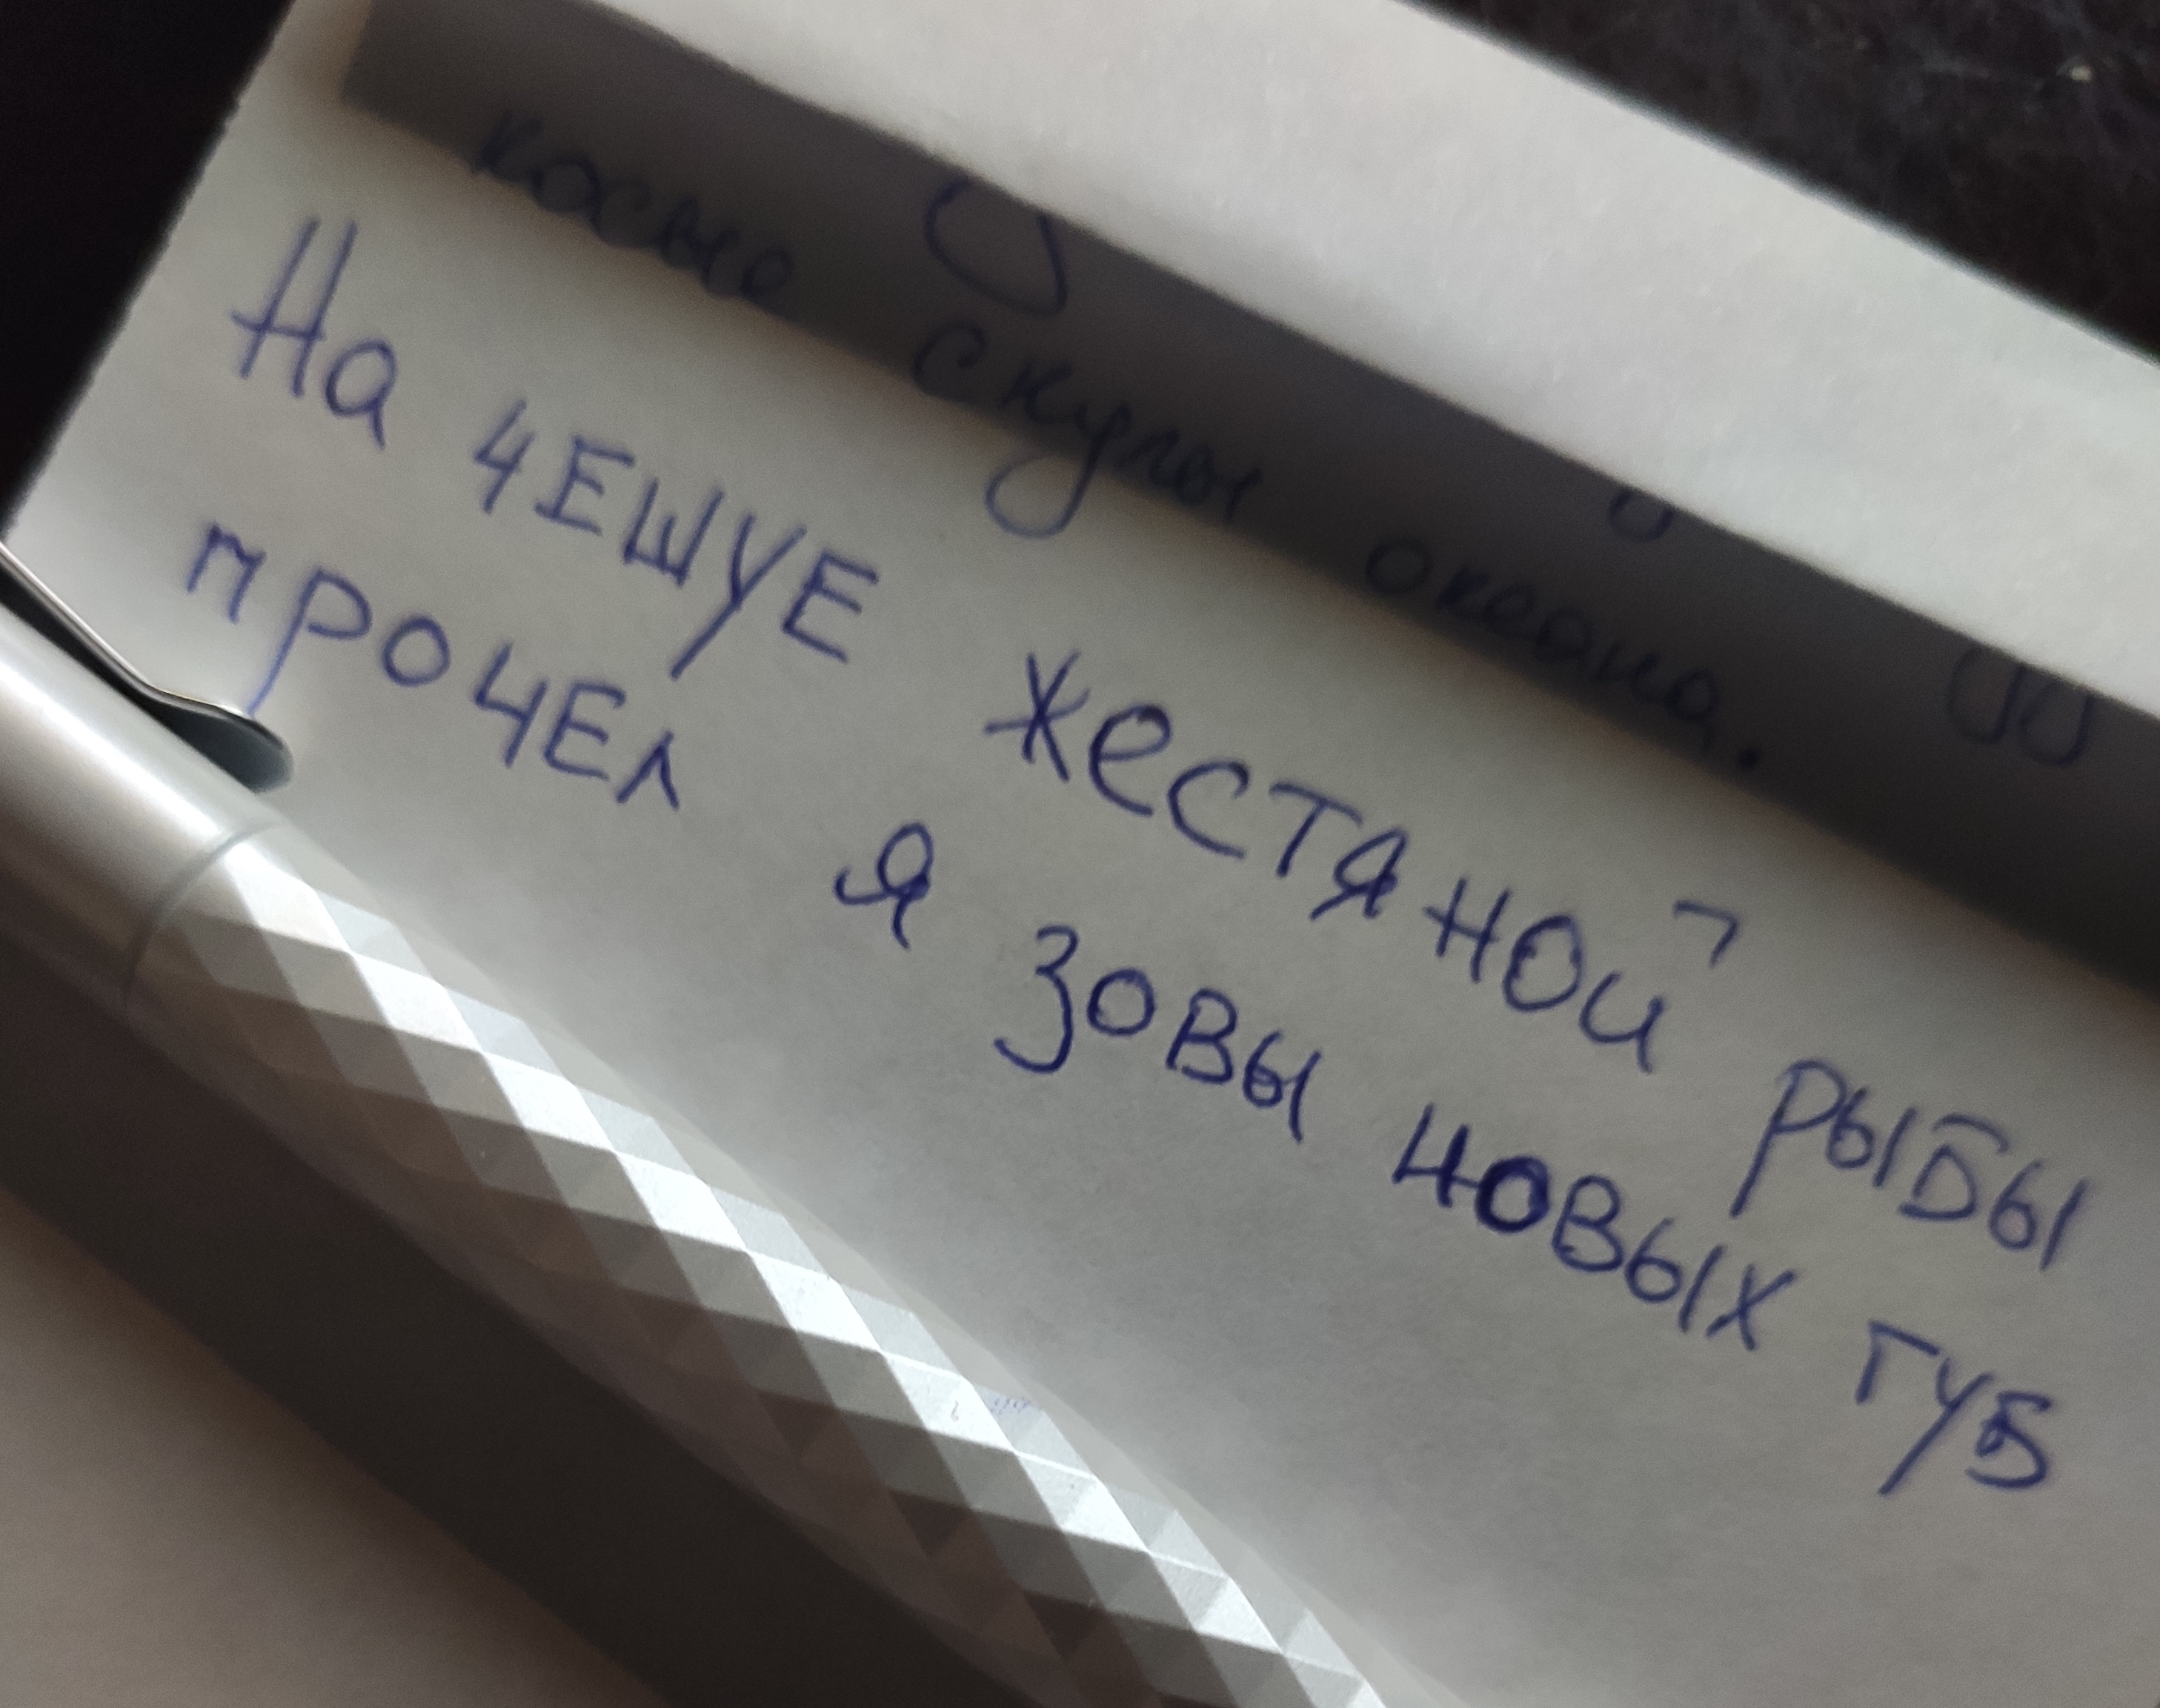 косые скулы океана.
На ЧЕШУЕ ЖЕСТЯНОЙ РЫБЫ
ПРОЧЕЛ Я ЗОВЫ НОВЫХ ГУБ